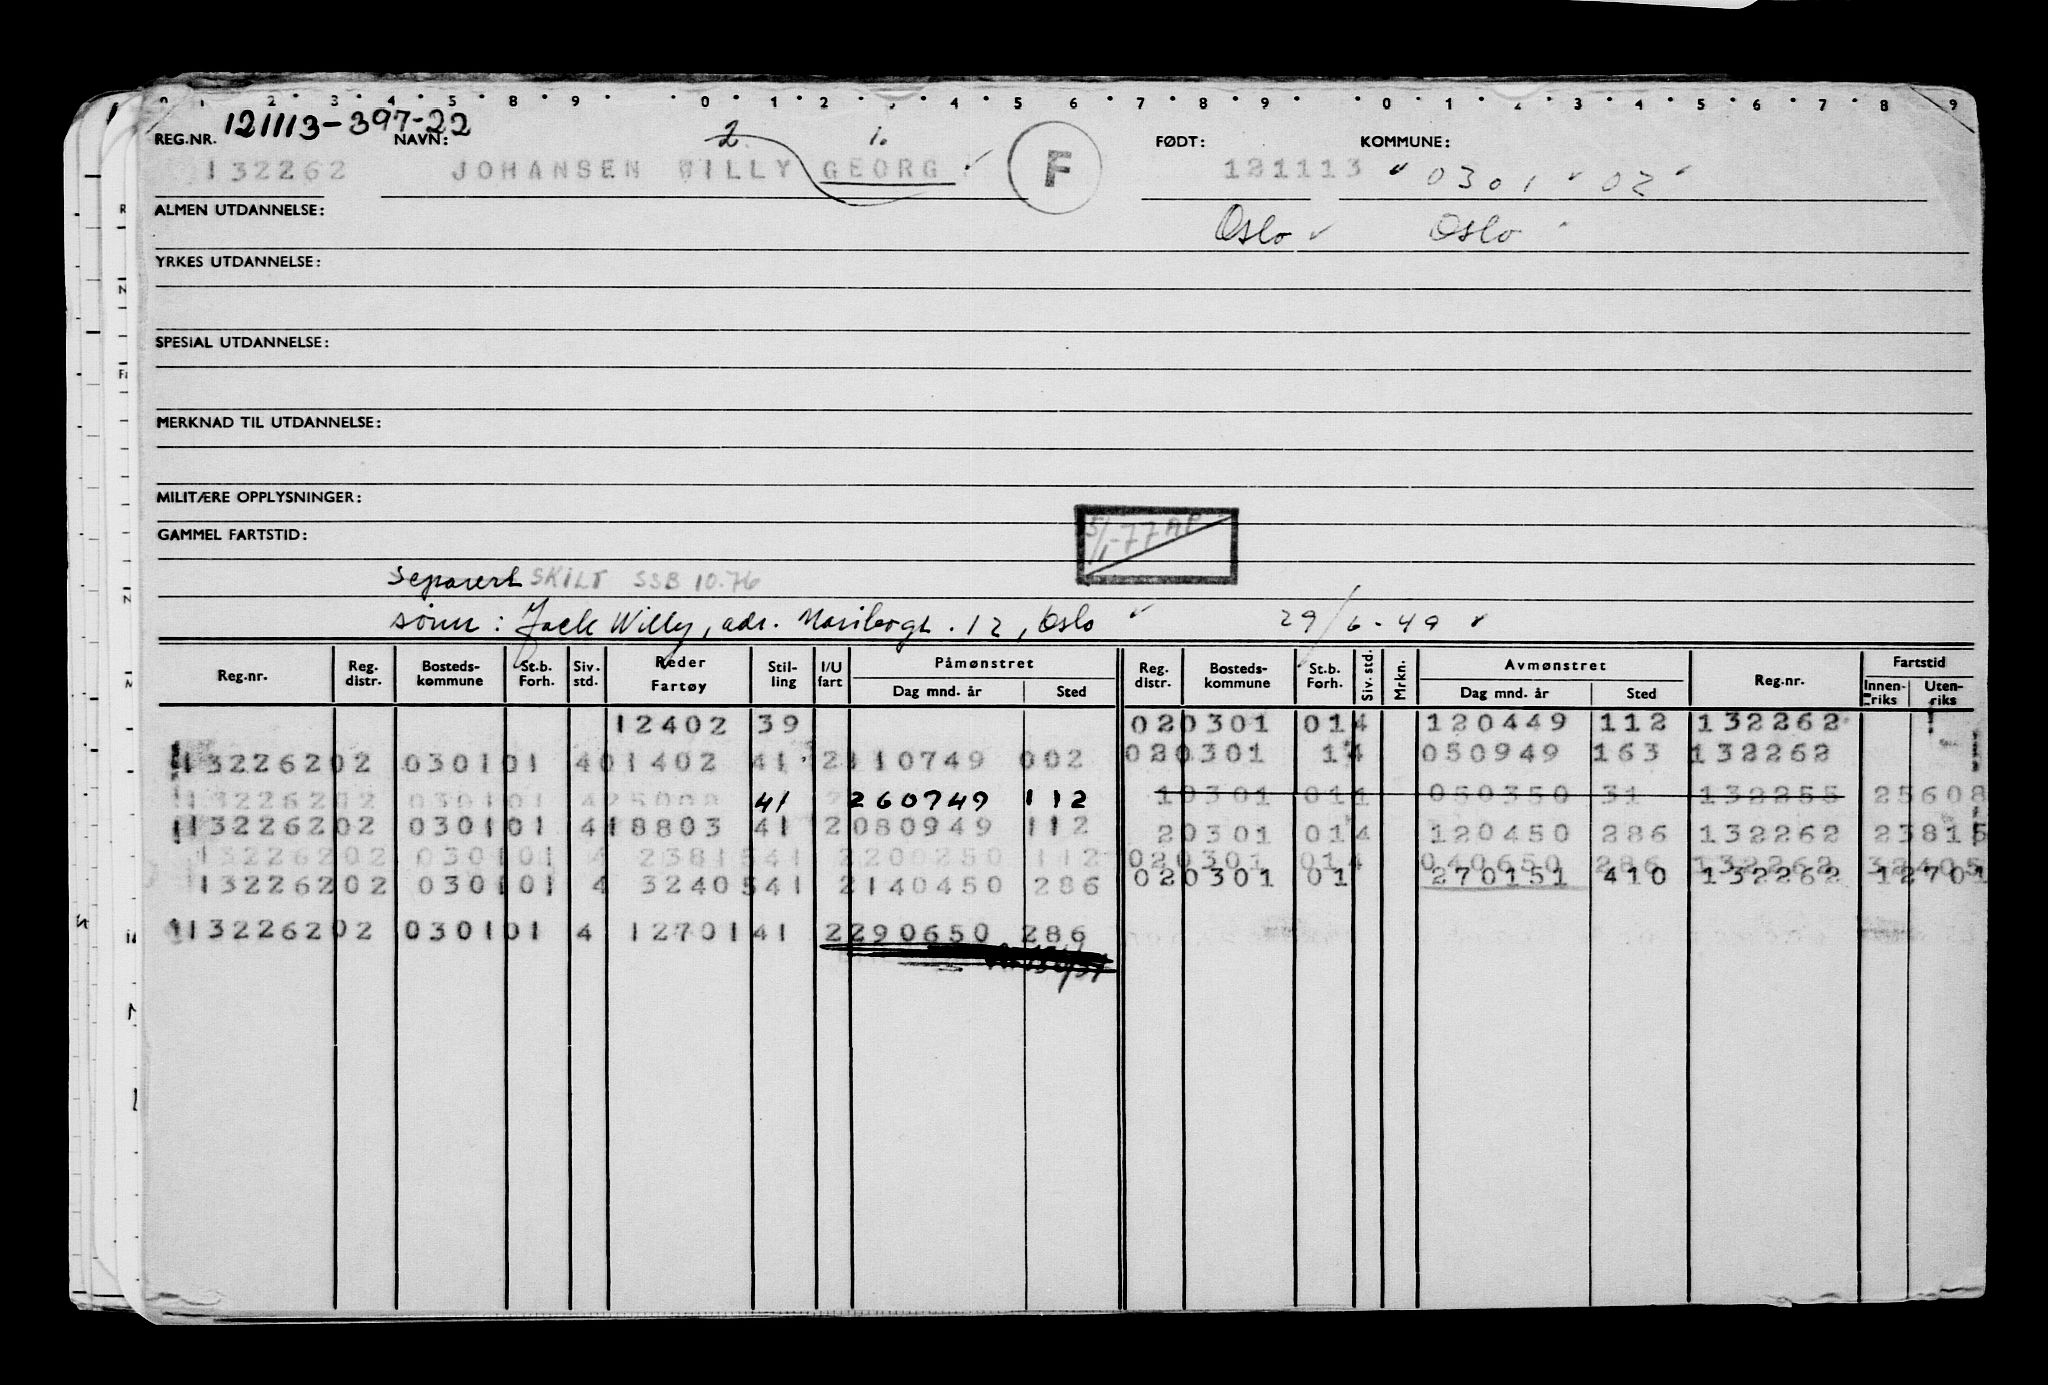 0 1 2 3 4 5 8 9 0 1 2 3 4 5 6 7 8 9 0 1 2 3 4 5 6 7 8 9
REG.NR. 121113-397-22 NAVN: 2. 1. FØDT: KOMMUNE:
132262 JOHANSEN WILLY GEORG ✓ F 121113 ✓ 0301 ✓ 02 ✓
ALMEN UTDANNELSE: Oslo ✓ Oslo
YRKES UTDANNELSE:
SPESIAL UTDANNELSE:
MERKNAD TIL UTDANNELSE:
MILITÆRE OPPLYSNINGER:
GAMMEL FARTSTID: 5/1-77 AP
Separert SKILT SSB 10.76
sønn: Jack Willy, adr. 12, Oslo ✓ 29/6-49 ✓
Reg.nr. Reg. distr. Bosteds-kommune St.b. Forh. Siv. std. Reder Fartøy Stil-ling I/U fart Påmønstret Dag mnd. år Sted Reg. distr. Bosteds-kommune St.b. Forh. Siv. std. Mrkn. Avmønstret Dag mnd. år Sted Reg.nr. Fartstid Innen-riks Uten-riks
12402 39 020301 014 120449 112 132262
132262 02 0301 01 4 01402 41 2 110749 002 020301 14 050949 163 132262
132262 02 0301 01 4 41 260749 112 10301 011 050350 31 132255 25608
132262 02 0301 01 4 18803 41 2 080949 112 20301 014 120450 286 132262 23815
132262 02 0301 01 4 23815 41 2 200250 112 020301 014 040650 286 132262 32405
132262 02 0301 01 4 32405 41 2 140450 286 020301 01 270151 410 132262 12701
132262 02 0301 01 4 12701 41 2 290650 286